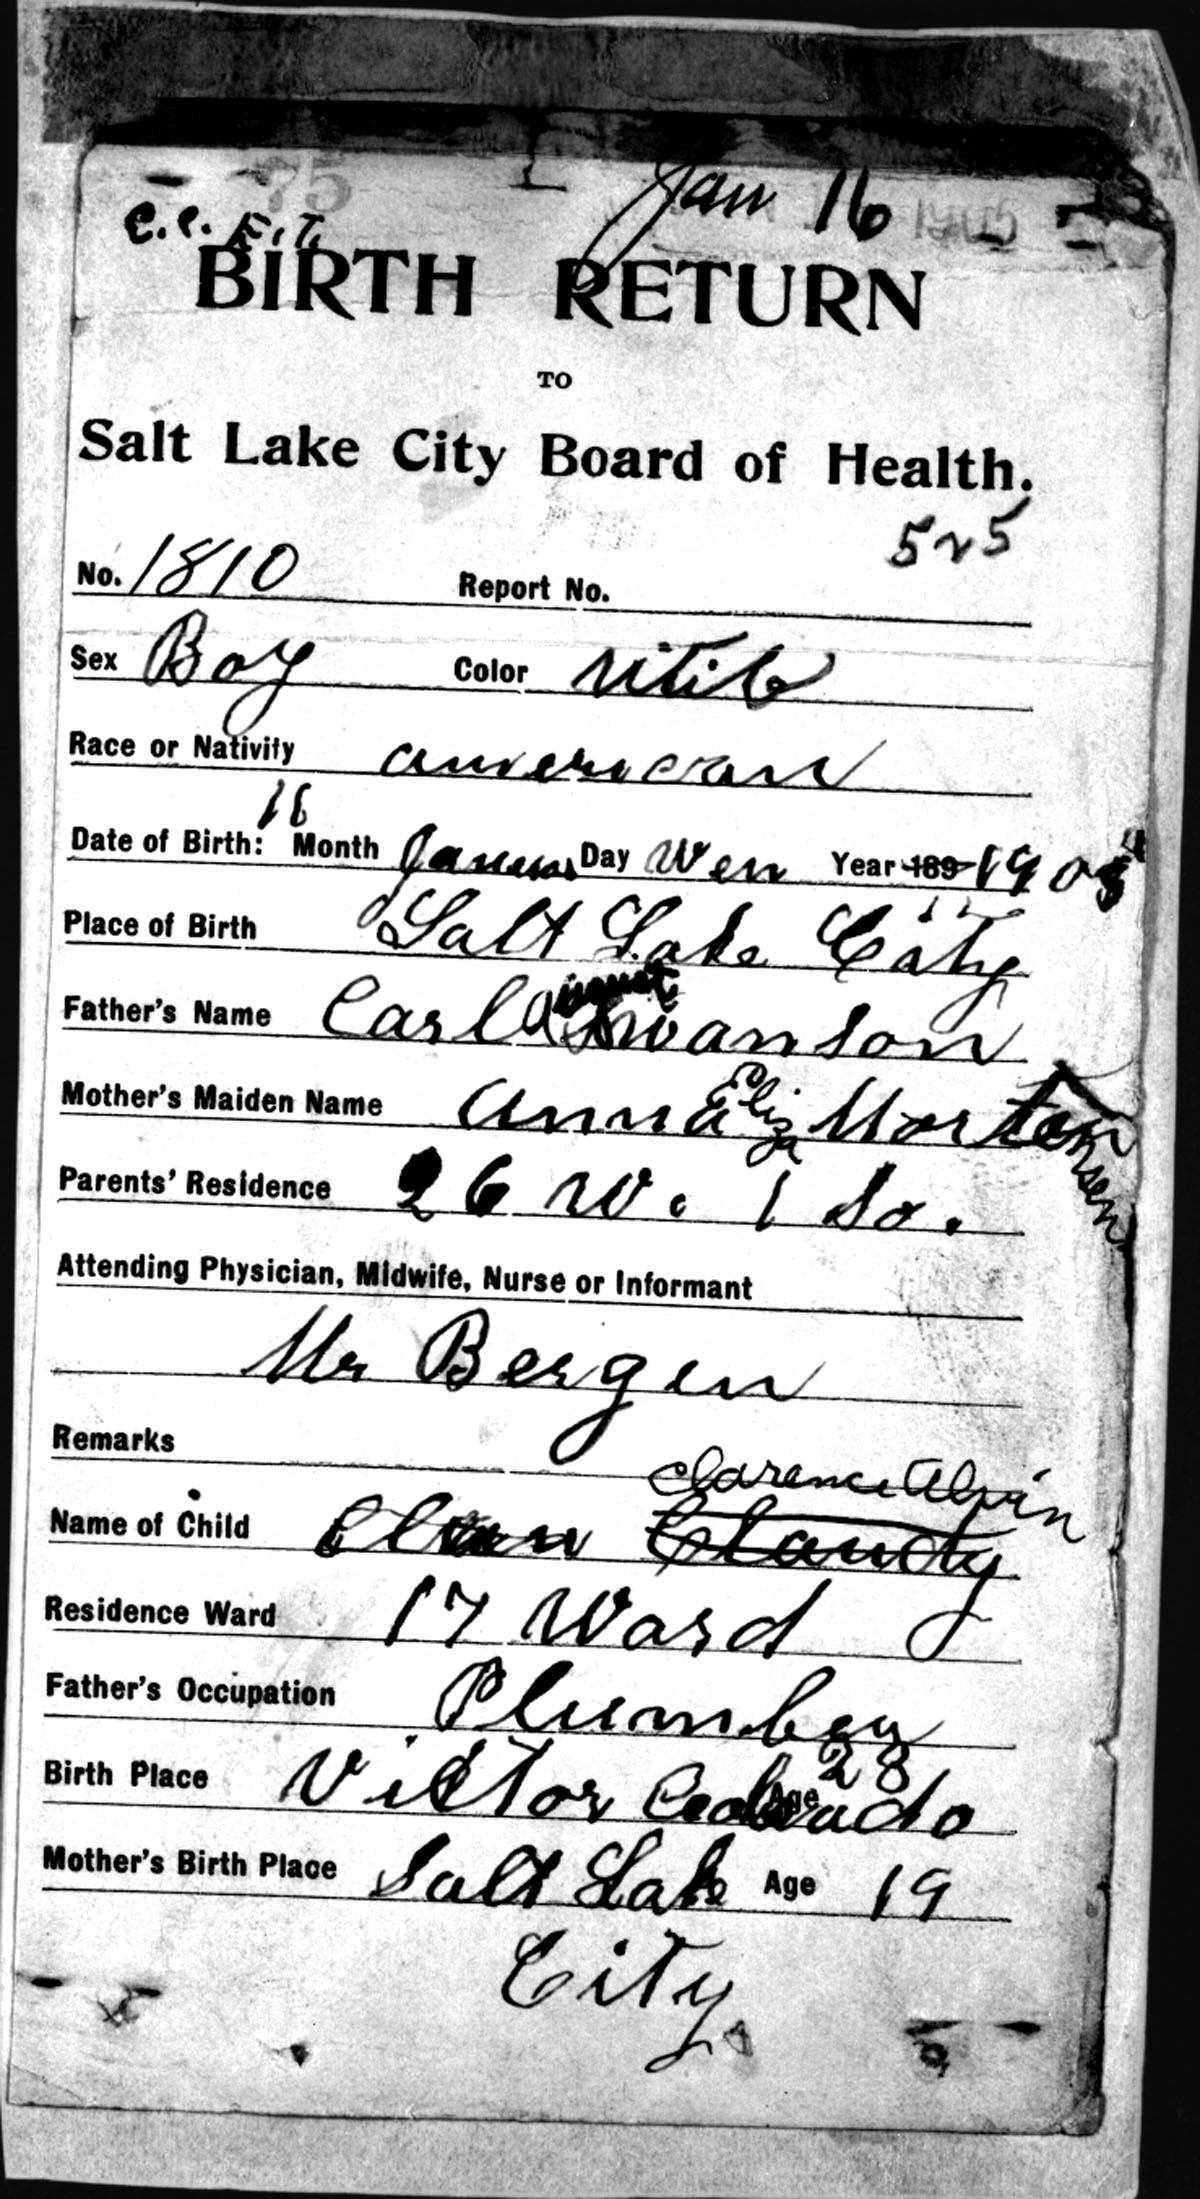 75
Jan 16 1905
C.C. E.T.
BIRTH RETURN
TO
Salt Lake City Board of Health.
525
No. 1810 Report No.
Sex Boy Color
Race or Nativity american
16
Date of Birth: Month Day Wen Year 189 190
Place of Birth Salt Lake City
Father's Name Carl Swanson
Mother's Maiden Name Anna Eliz Mortensen
Parents' Residence 26 W. 1 So.
Attending Physician, Midwife, Nurse or Informant
Bergen
Remarks
Clarence Alvin
Name of Child Claudy
Residence Ward 17 Ward
Father's Occupation Plumber
28
Birth Place Victor Colorado Age
Mother's Birth Place Salt Lake Age 19
City